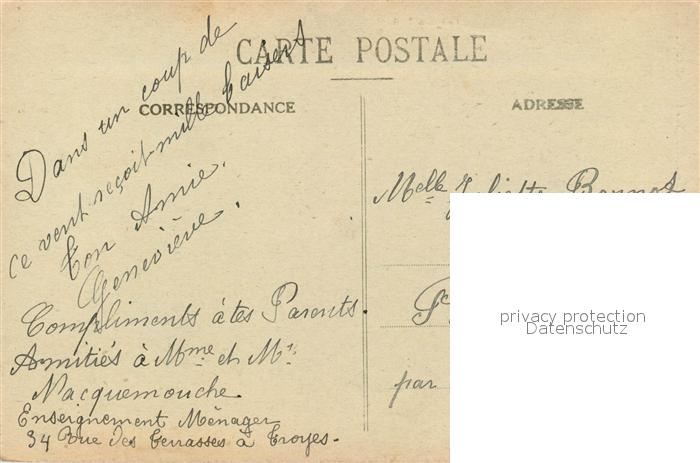 CARTE POSTALE
CORRESPONDANCE
ADRESSE
Dans un coup de
ce vent reçoit mille baisers
Ton Amie.
Geneviève.
Compliments à tes Parents.
Amitiés à Mme et Mr.
Macquemouche.
Enseignement Ménager
34 Rue des Terrasses à Troyes.
Melle Juliette Bonnot
par
privacy protection
Datenschutz